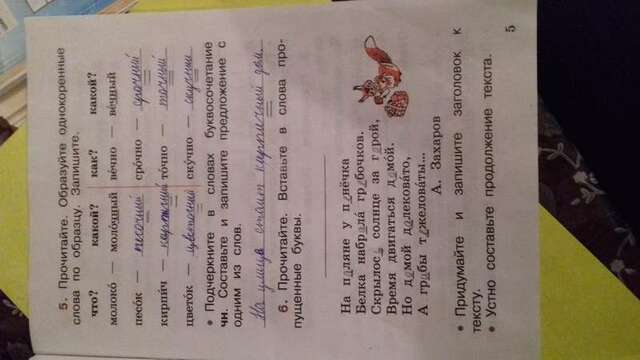 5. Прочитайте. Образуйте однокоренные
слова по образцу. Запишите.
что? какой? как? какой?
молоко́ — моло́чный ве́чно — ве́чный
песо́к — песочный сро́чно — срочный
кирпи́ч — кирпичный то́чно — точный
цвето́к — цветочный ску́чно — скучный
• Подчеркните в словах буквосочетание
чн. Составьте и запишите предложение с
одним из слов.
На улице стоит кирпичный дом.
6. Прочитайте. Вставьте в слова про-
пущенные буквы.
На поляне у пенёчка
Белка набрала́ грибочков.
Скрылось солнце за горой,
Время двигаться домо́й.
Но домой далекова́то,
А грибы тяжелова́ты...
А. Захаров
• Придумайте и запишите заголовок к
тексту.
• Устно составьте продолжение текста.
5